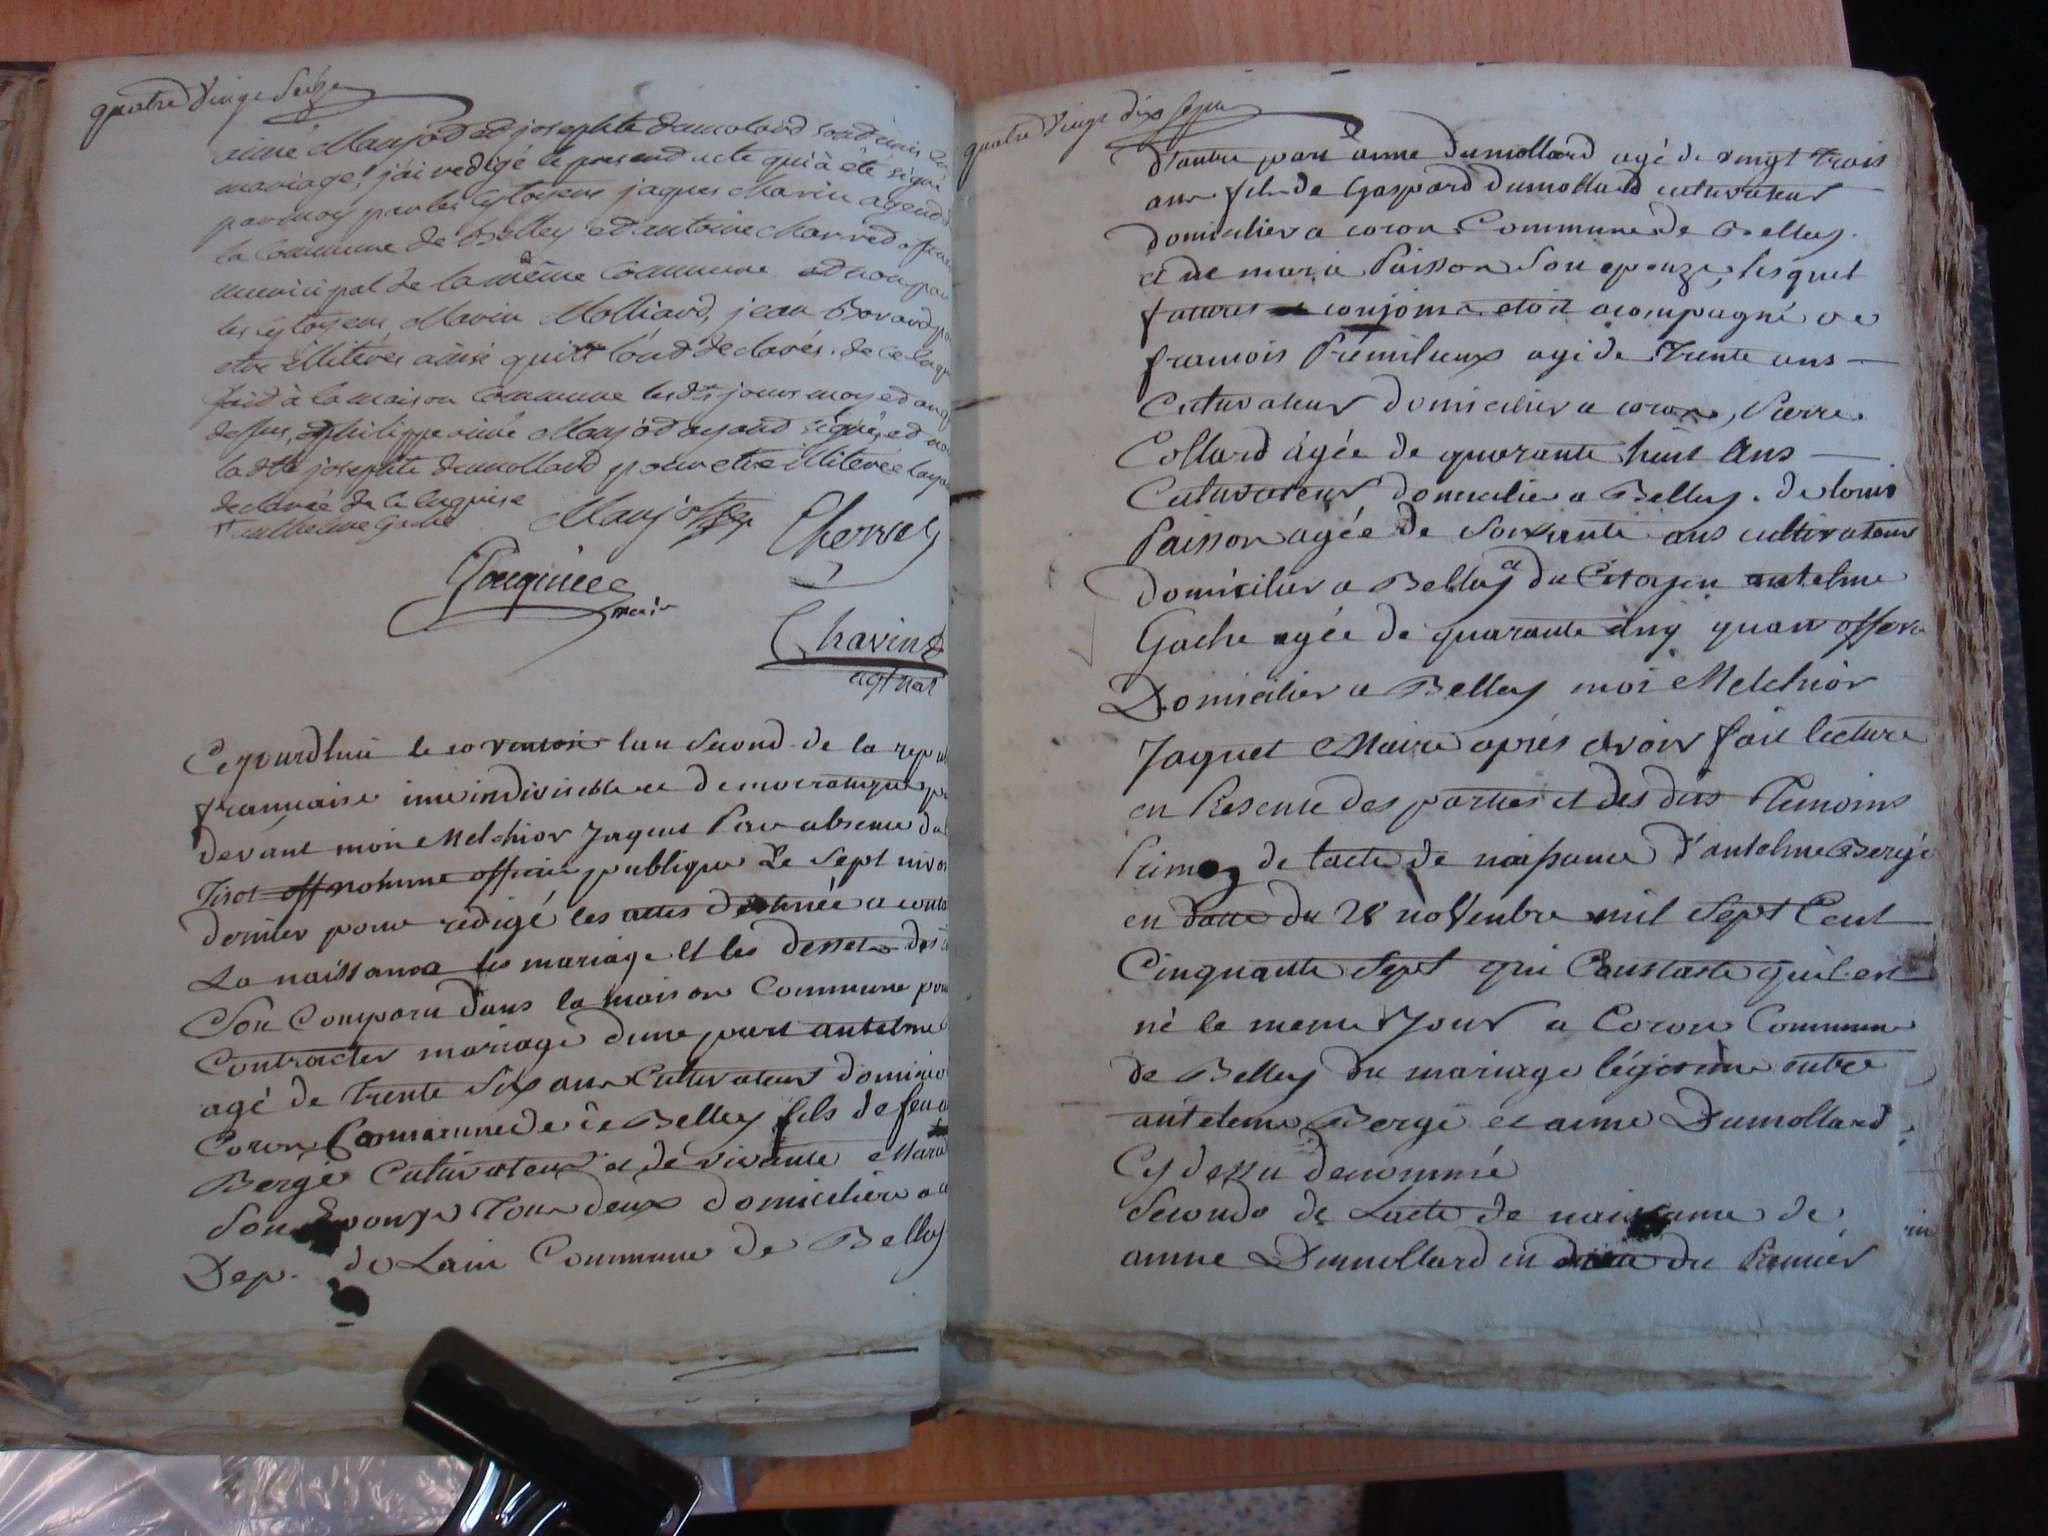 quatre vingt Seize
aimé Maujod et josephte dumolard sont unis en
mariage, j'ai redigé le present acte qui à êté signé
par moy par les Cytoyens jaques chavin agend
la Commune de Belley et antoine charved
municipal de la même Commune et non par
les Cytoyens Marin Molliard, jean Bovard
etre illiterés ainsi quils l'ont déclarés de ce
fait à la maison Commune les dts jours moy et an
dessus, et philippe aimé Maujod ayant signé, et non
la dte josephte dumollard pour etre illiterée
declarée de ce enquise
Maujod
Cherved
Jaquinet
maire
Chavin
agt nat
Cejourdhui le 10 ventose lan Second de la repu
francaise une indivisible et democratique
devant moi Melchior Jaquet Par absence du
Tisot nomme officier publique Le Sept nivo
dernier pour redigé les actes destinée a const
La naissance les mariage et les desset des
Son Comparu dans la maison Commune pour
Contracter mariage dune part antelme
agé de trente Six ans Cultivateur domicio
Coron Commune de de Belley fils de feu
Bergé Cultivateur et de vivante Marie
Son Epouze Tous deux domicilier a
Dep. de Lain Commune de Belley
quatre vingt dix Sept
d'autre part anne dumollard agé de vingt trois
ans fil de Gaspard dumollard cultivateur
domicilier a coron Commune de Belley.
et de maria Paisson Son epouze, lesquel
futures conjoins etoit acompagné de
francois Premilieux agé de Trente ans
Cultivateur domicilier a coron, Pierre
Collard âgée de quarante huit Ans
Cultivateur domicilier a Belley. de louis
Paisson agée de Soixante ans cultivateur
domicilier a Belley et du Citoyen antelme
Gache agée de quarante Cinq
Domicilier a Belley moi Melchior
Jaquet Maire aprés avoir fait lecture
en Presence des parties et des dits Temoins
Primo de lacte de naissance d'antelme Bergé
en datte du 28 noVembre mil Sept Cent
Cinquante Sept qui Constaste quil est
né le meme Jour a Coron Commune
de Belley du mariage légitime entre
antelme Bergé et anne Dumollard
Cy dessu denommé
Secondo de Lacte de naissance de
anne Dumollard en date du Premier